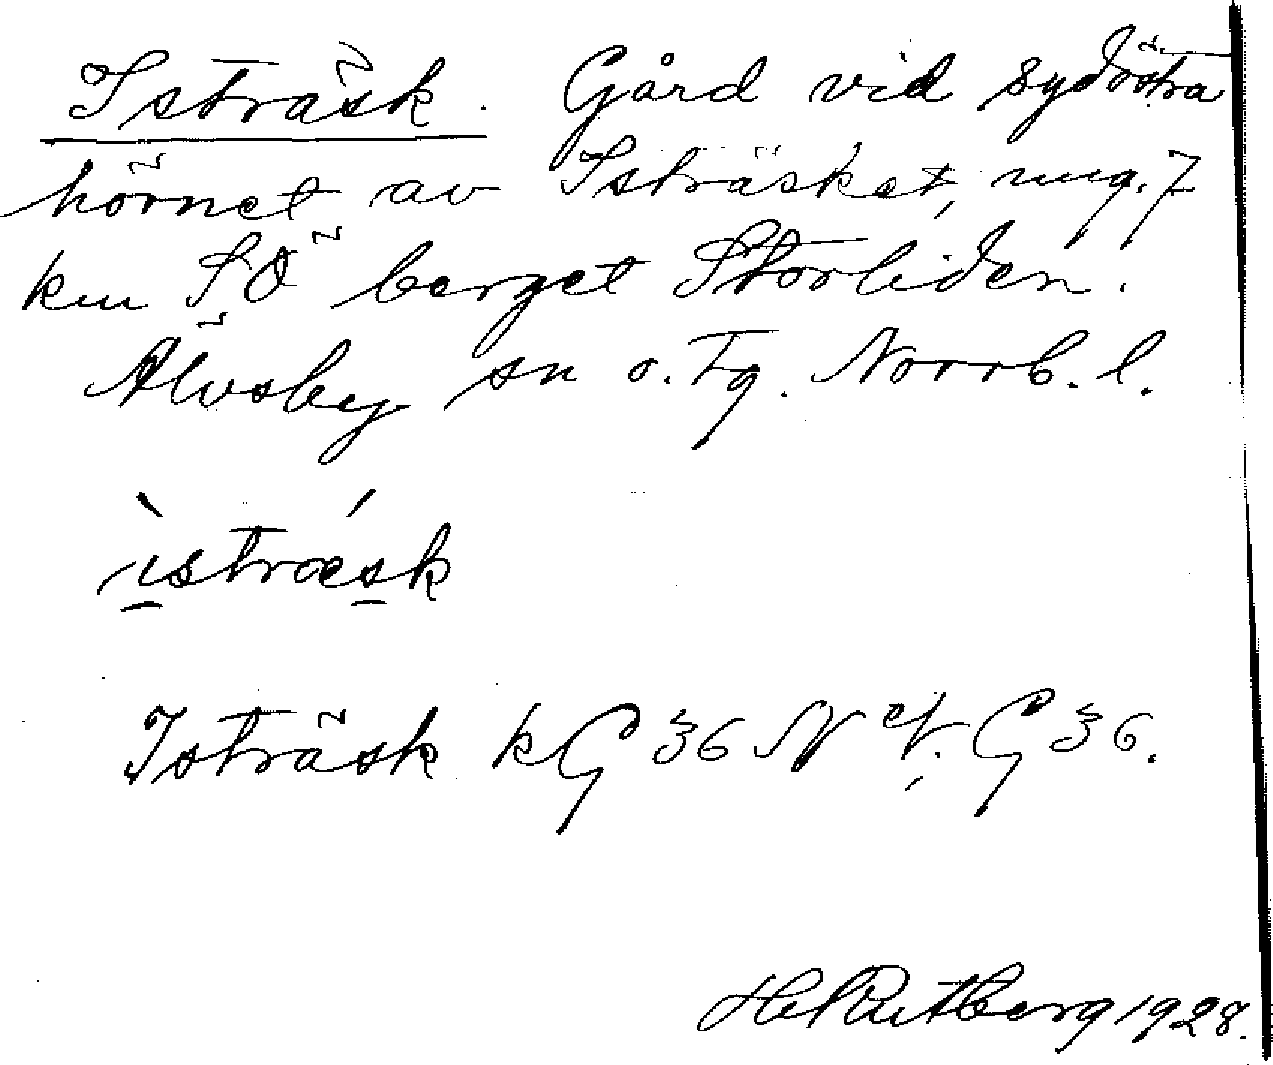 Isträsk. Gård vid sydöstra
hörnet av Isträsket, ung. 7
km SÖ berget Storliden.
Älvsby sn o. tg. Norrb. l.
ìstrǽsk
Isträsk kG 36 N of. G 36.
Hel Rutberg 1928.